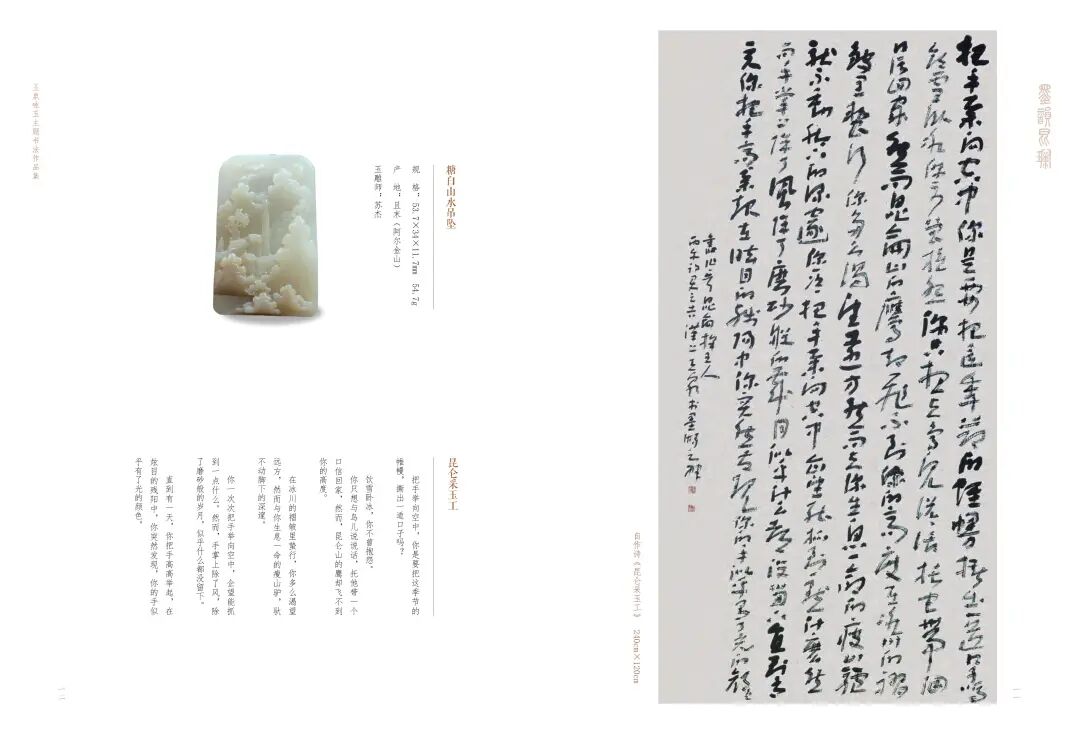 把手举向空中你是要把这季节的帷幔撕出一道口子吗
饮雪卧冰你不曾抱怨你只想与鸟儿说说话托它带一个
口信回家然而昆仑山的鹰却飞不到你的高度在冰川的褶
皱里蛰行你多么渴望远方然而与你生息一命的瘦山驴
驮不动脚下的深邃你一次次把手举向空中企望能抓到一点什么然
而手掌上除了风除了磨砂般的岁月似乎什么都没留下直到有一
天你把手高高举起在炫目的残阳中你突然发现你的手似乎有了光的颜色
自作诗《昆仑采玉工》 240cm×120cm
一一
糖白山水吊坠
规 格：53.7×34×11.7mm 54.7g
产 地：且末（阿尔金山）
玉雕师：苏杰
昆仑采玉工
把手举向空中，你是要把这季节的
帷幔，撕出一道口子吗？
饮雪卧冰，你不曾抱怨。
你只想与鸟儿说说话，托他带一个
口信回家，然而，昆仑山的鹰却飞不到
你的高度。
在冰川的褶皱里蛰行，你多么渴望
远方，然而与你生息一命的瘦山驴，驮
不动脚下的深邃。
你一次次把手举向空中，企望能抓
到一点什么。然而，手掌上除了风，除
了磨砂般的岁月，似乎什么都没留下。
直到有一天，你把手高高举起，在
炫目的残阳中，你突然发现，你的手似
乎有了光的颜色。
玉泉咏玉主题书法作品集
一二